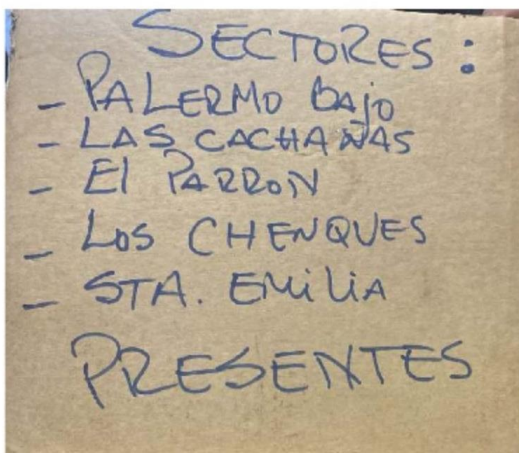 SECTORES:
- PALERMO BAJO
- LAS CACHAÑAS
- El PARRON
- LOS CHENQUES
- STA. EMiLiA
PRESENTES